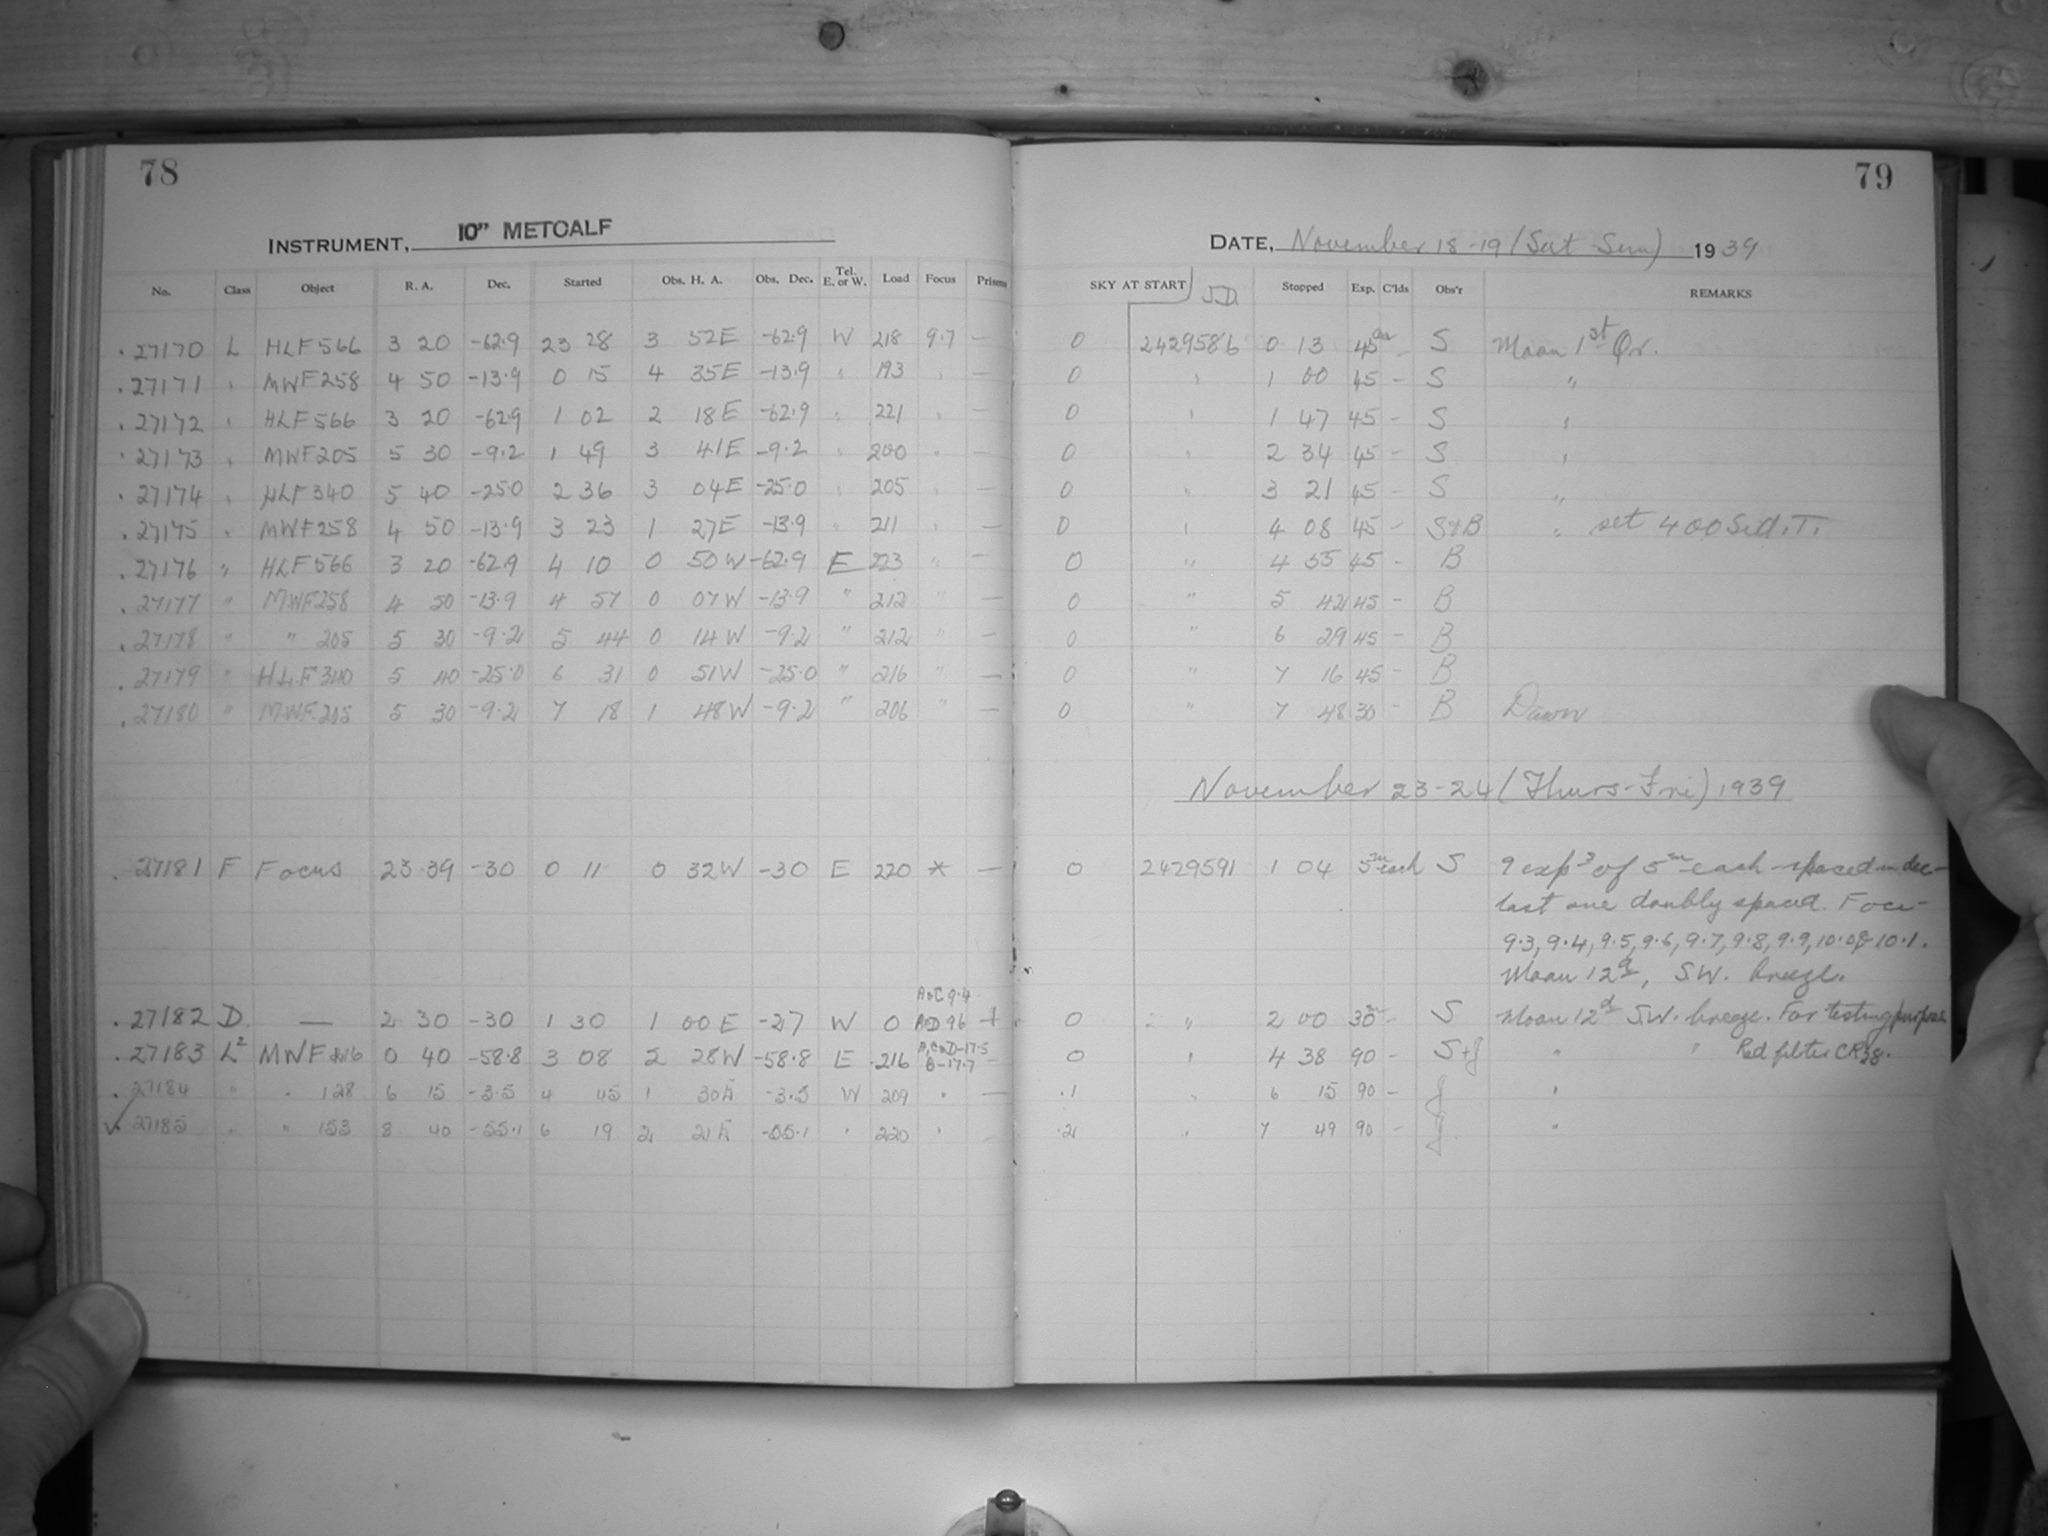 78
INSTRUMENT, 10" METCALF
No. Class Object R. A. Dec. Started Obs. H. A. Obs. Dec. Tel. E. or W. Load Focus Prisms
27170 L HLF566 3 20 -62.9 23 28 3 52E -62.9 W 218 9.7 —
27171 " MWF258 4 50 -13.9 0 15 4 35E -13.9 " 193 " —
27172 " HLF566 3 20 -62.9 1 02 2 18E -62.9 " 221 " —
27173 " MWF205 5 30 -9.2 1 49 3 41E -9.2 " 200 " —
27174 " HLF340 5 40 -25.0 2 36 3 04E -25.0 " 205 " —
27175 " MWF258 4 50 -13.9 3 23 1 27E -13.9 " 211 " —
27176 " HLF566 3 20 -62.9 4 10 0 50W -62.9 E 223 " —
27177 " MWF258 4 50 -13.9 4 57 0 07W -13.9 " 212 " —
27178 " " 205 5 30 -9.2 5 44 0 14W -9.2 " 212 " —
27179 " HLF340 5 40 -25.0 6 31 0 51W -25.0 " 216 " —
27180 " MWF205 5 30 -9.2 7 18 1 48W -9.2 " 206 " —
27181 F Focus 23 39 -30 0 11 0 32W -30 E 220 * —
A&C 9.4
27182 D — 2 30 -30 1 30 1 00E -27 W 0 B&D 9.6 +
27183 L² MWF 0 40 -58.8 3 08 2 28W -58.8 E 216 A,C&D-17.5 B-17.7 —
27184 " " 128 6 15 -3.5 4 45 1 30E -3.5 W 209 " —
✓ 27185 " " 153 8 40 -55.1 6 19 2 21E -55.1 " 220 " —
79
DATE, November 18-19 (Sat-Sun) 1939
SKY AT START J.D. Stopped Exp. C'lds Obs'r REMARKS
0 2429586 0 13 45m — S Moon 1st Qr.
0 " 1 00 45 — S "
0 " 1 47 45 — S "
0 " 2 34 45 — S "
0 " 3 21 45 — S "
0 " 4 08 45 — S&B " set 400 Sid. T.
0 " 4 55 45 — B
0 " 5 42 45 — B
0 " 6 29 45 — B
0 " 7 16 45 — B
0 " 7 48 30 — B Dawn
November 23-24 (Thurs-Fri) 1939
0 2429591 1 04 5m each S 9 exps of 5m each spaced in dec-
last one doubly spaced. Foci-
9.3, 9.4, 9.5, 9.6, 9.7, 9.8, 9.9, 10.0 & 10.1.
Moon 12d, S.W. breeze.
0 " 2 00 30m — S Moon 12d S.W. breeze. For testing purpose
0 " 4 38 90 — S+J " " Red filter
.1 " 6 15 90 — J "
.2 " 7 49 90 — J "